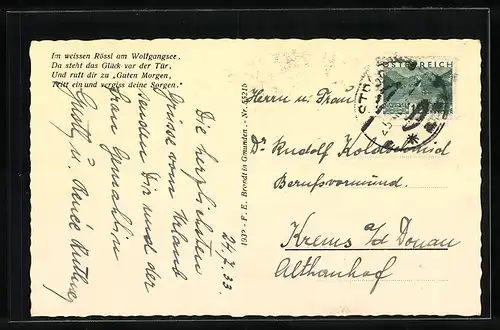 Im weissen Rössl am Wolfgangsee,
Da steht das Glück vor der Tür,
Und ruft dir zu „Guten Morgen,
Tritt ein und vergiss deine Sorgen."
24. 7. 33.
Die herzlichsten
Grüsse vom Urlaub
senden Dir und der
Frau Gemahlin
Gustl u. Renée
F. E. Brandt in Gmunden. - Nr.
ÖSTERREICH
Herrn u. Frau
Dr. Rudolf Holdschmid
Berufsvormund.
Krems a/d Donau
Althanhof